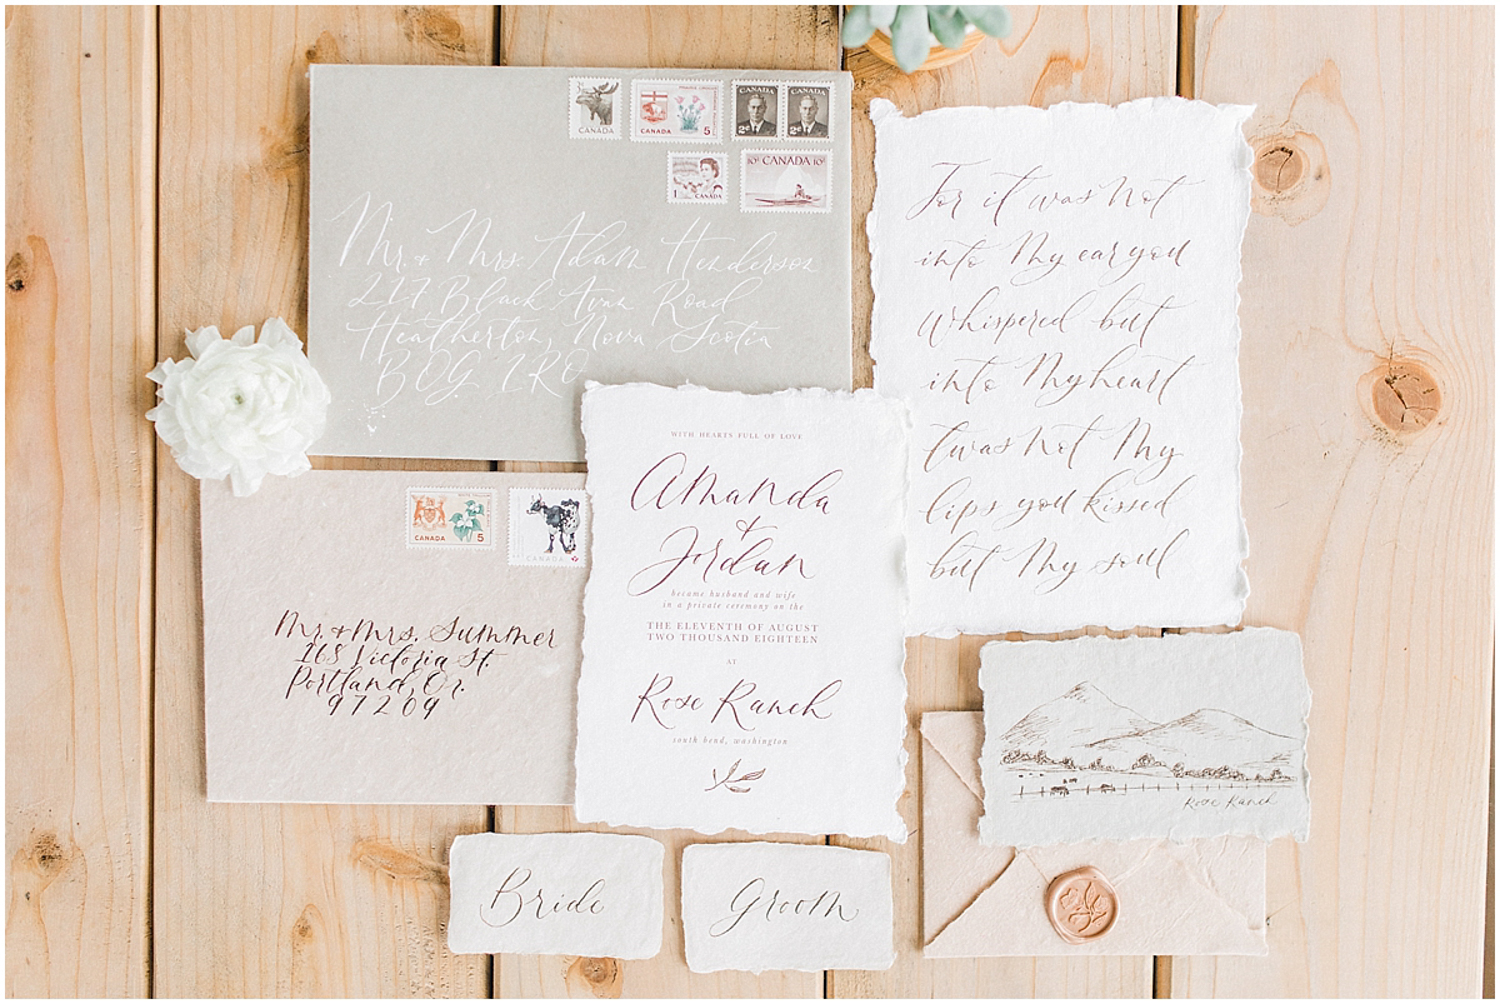 CANADA
CANADA 5
CANADA
2¢
CANADA
2¢
1 CANADA
10¢ CANADA 10¢
Mr. & Mrs. Adam Henderson
227 Black Avan Road
Heatherton, Nova Scotia
B0G 1R0
For it was not
into My ear you
Whispered but
into My heart
twas not My
lips you kissed
but My soul
WITH HEARTS FULL OF LOVE
Amanda
&
Jordan
became husband and wife
in a private ceremony on the
THE ELEVENTH OF AUGUST
TWO THOUSAND EIGHTEEN
AT
Rose Ranch
south bend, washington
CANADA 5
CANADA P
Mr. & Mrs. Summer
168 Victoria St.
Portland, Or.
97209
Rose Ranch
Bride
Groom